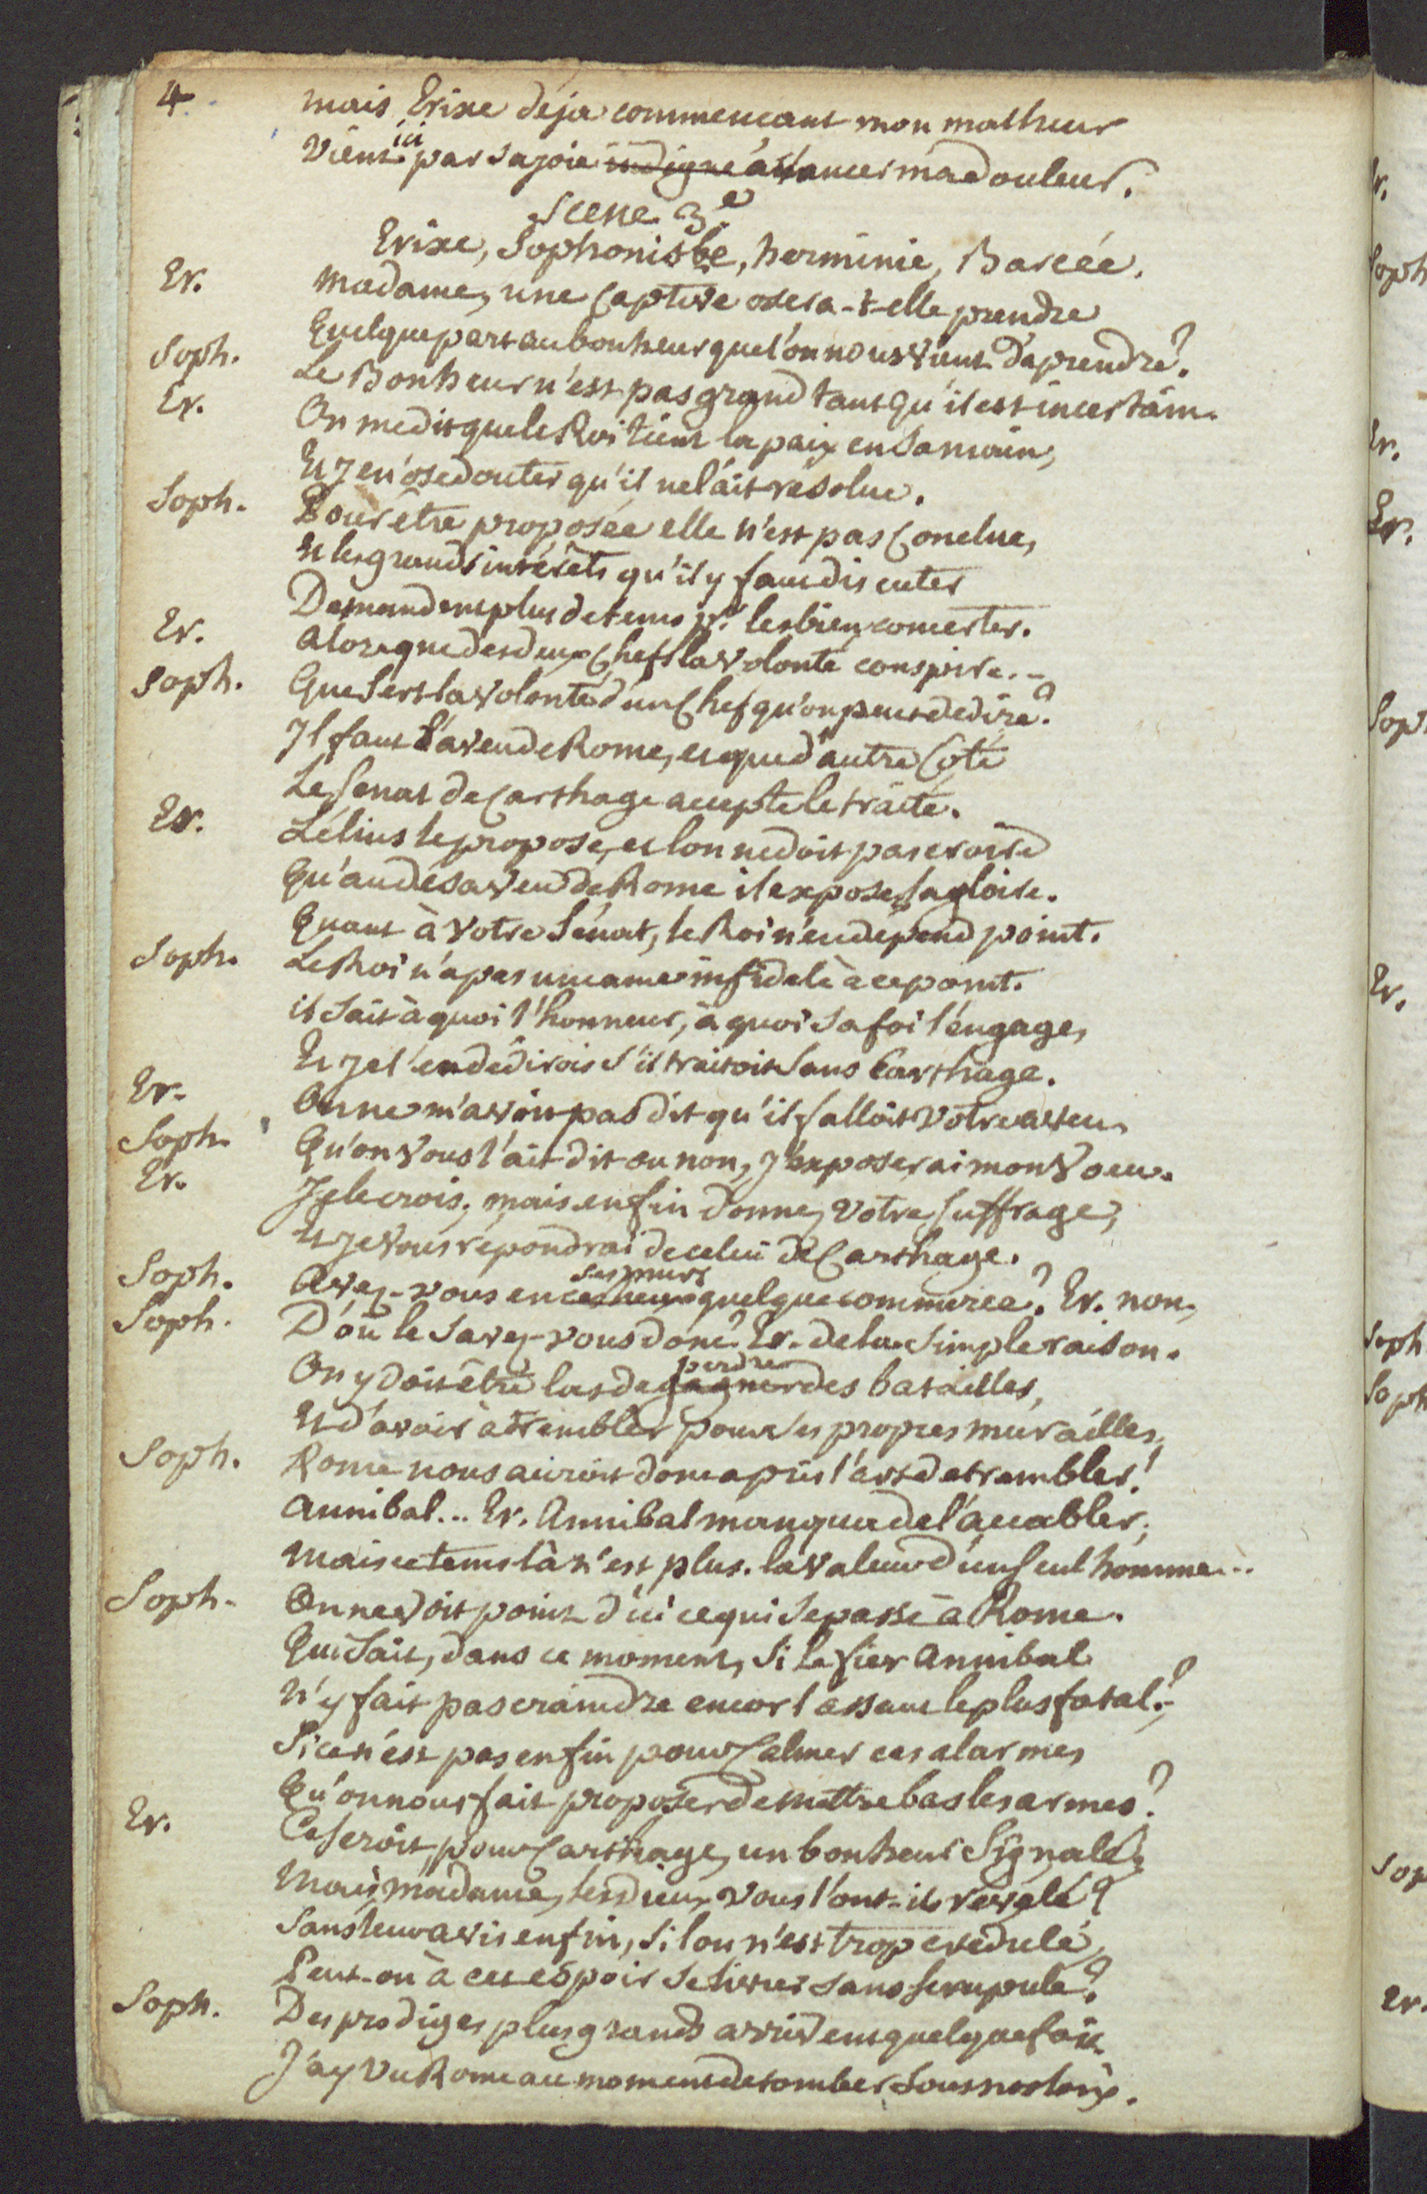 4. mais Erixe déja commencant mon malheur
Vient ici par sa joie indigne avancer ma douleur.
Scene 3.e
Erixe, Sophonisbe, herminie, Barcée.
Er. Madame, une Captive osera-t-elle prendre
Quelque part au bonheur que l'on nous vient d'aprendre?
Soph. Le Bonheur n'est pas grand tant qu'il est incertain.
Er. On me dit que le Roi tient la paix en sa main,
Et je n'ose douter qu'il ne l'ait résolue.
Soph. Pour être proposée elle n'est pas Conclue,
Et les grands intérêts qu'il y faut discuter
Demandent plus de tems pr. les bien concerter.
Er. alors que des deux Chefs la volonté conspire...
Soph. Que sert la volonté d'un Chef qu'on peut dedire?
Il faut l'aveu de Rome, et que d'autre Côté
Le Senat de Carthage accepte le traité.
Er. Lélius le propose, et lon ne doit pas croire
Qu'au désaveu de Rome il expose sa gloire.
Quant à votre Sénat, le Roi n'en dépend point.
Soph. Le Roi n'a pas une ame infidele à ce point.
il sait à quoi l'honneur, à quoi sa foi l'engage,
Et je l'en dédirois s'il traitoit sans Carthage.
Er. On ne m'avoit pas dit qu'il falloit votre aveu.
Soph. Qu'on vous l'ait dit ou non, j'exposerai mon voeu.
Er. Je le crois; mais enfin donnez votre suffrage,
Et je vous répondrai de celui de Carthage.
Soph. Avez-vous en ses murs quelque commerce? Er. non,
Soph. D'où le savez-vous donc? Er. de la simple raison.
On y doit être las de gagner perdre des batailles,
Et d'avoir à trembler pour ses propres murailles.
Soph. Rome nous auroit donc apris l'art de trembler!
Annibal... Er. Annibal manqua de l'accabler;
Mais ce tems là n'est plus. la valeur d'un seul homme...
Soph. On ne voit point d'ici ce qui se passe à Rome.
Qui sait, dans ce moment, si le fier Annibal
N'y fait pas craindre encor l'assaut le plus fatal?
Si ce n'est pas enfin pour Calmer ces alarmes
Qu'on nous fait proposer de mettre bas les armes?
Er. Ce seroit, pour Carthage, un bonheur Signalé;
Mais, madame, les dieux vous l'ont-ils revelé?
Sans leur avis enfin, si lon n'est trop credule,
Peut-on à cet espoir se livrer sans scrupule?
Soph. Des prodiges plus grands arrivent quelquefois
J'ay vu Rome au moment de tomber sous nos loix.